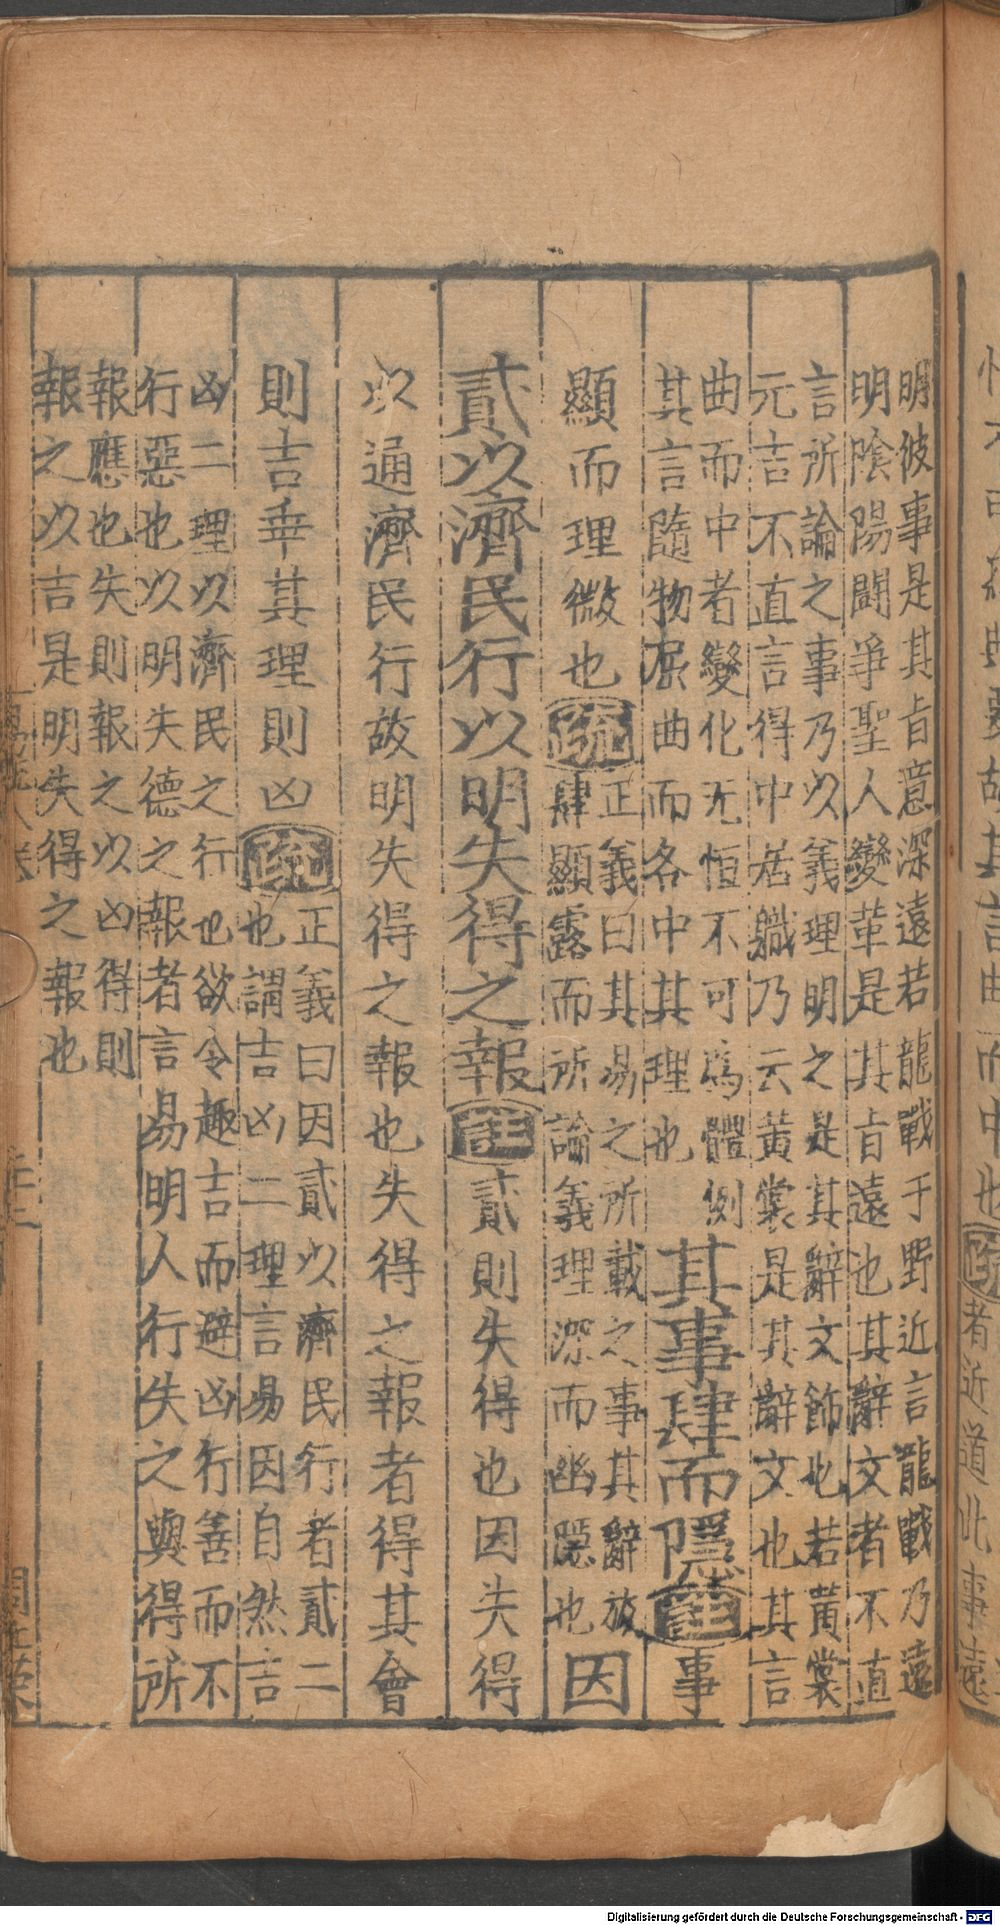 明彼事是其旨意深遠若龍戰于野近言龍戰乃遠
明陰陽鬬爭聖人變革是其旨遠也其辭文者不直
言所論之事乃以義理明之是其辭文飾也若黃裳
元吉不直言得中居職乃云黃裳是其辭文也其言
曲而中者變化无恒不可爲體例
其言隨物屈曲而各中其理也
其事肆而隱註事
顯而理微也疏
正義曰其易之所載之事其辭放
肆顯露而所論義理深而幽隱也
因
貳以濟民行以明失得之報註貳則失得也因失得
以通濟民行故明失得之報也失得之報者得其會
則吉乖其理則凶疏
正義曰因貳以濟民行者貳二
也謂吉凶二理言易因自然言
凶二理以濟民之行也欲令趣吉而避凶行善而不
行惡也以明失德之報者言易明人行失之與得所
報應也失則報之以凶得則
報之以吉是明失得之報也
其言曲而中也疏
者近道此事遠
Digitalisierung gefördert durch die Deutsche Forschungsgemeinschaft - DFG